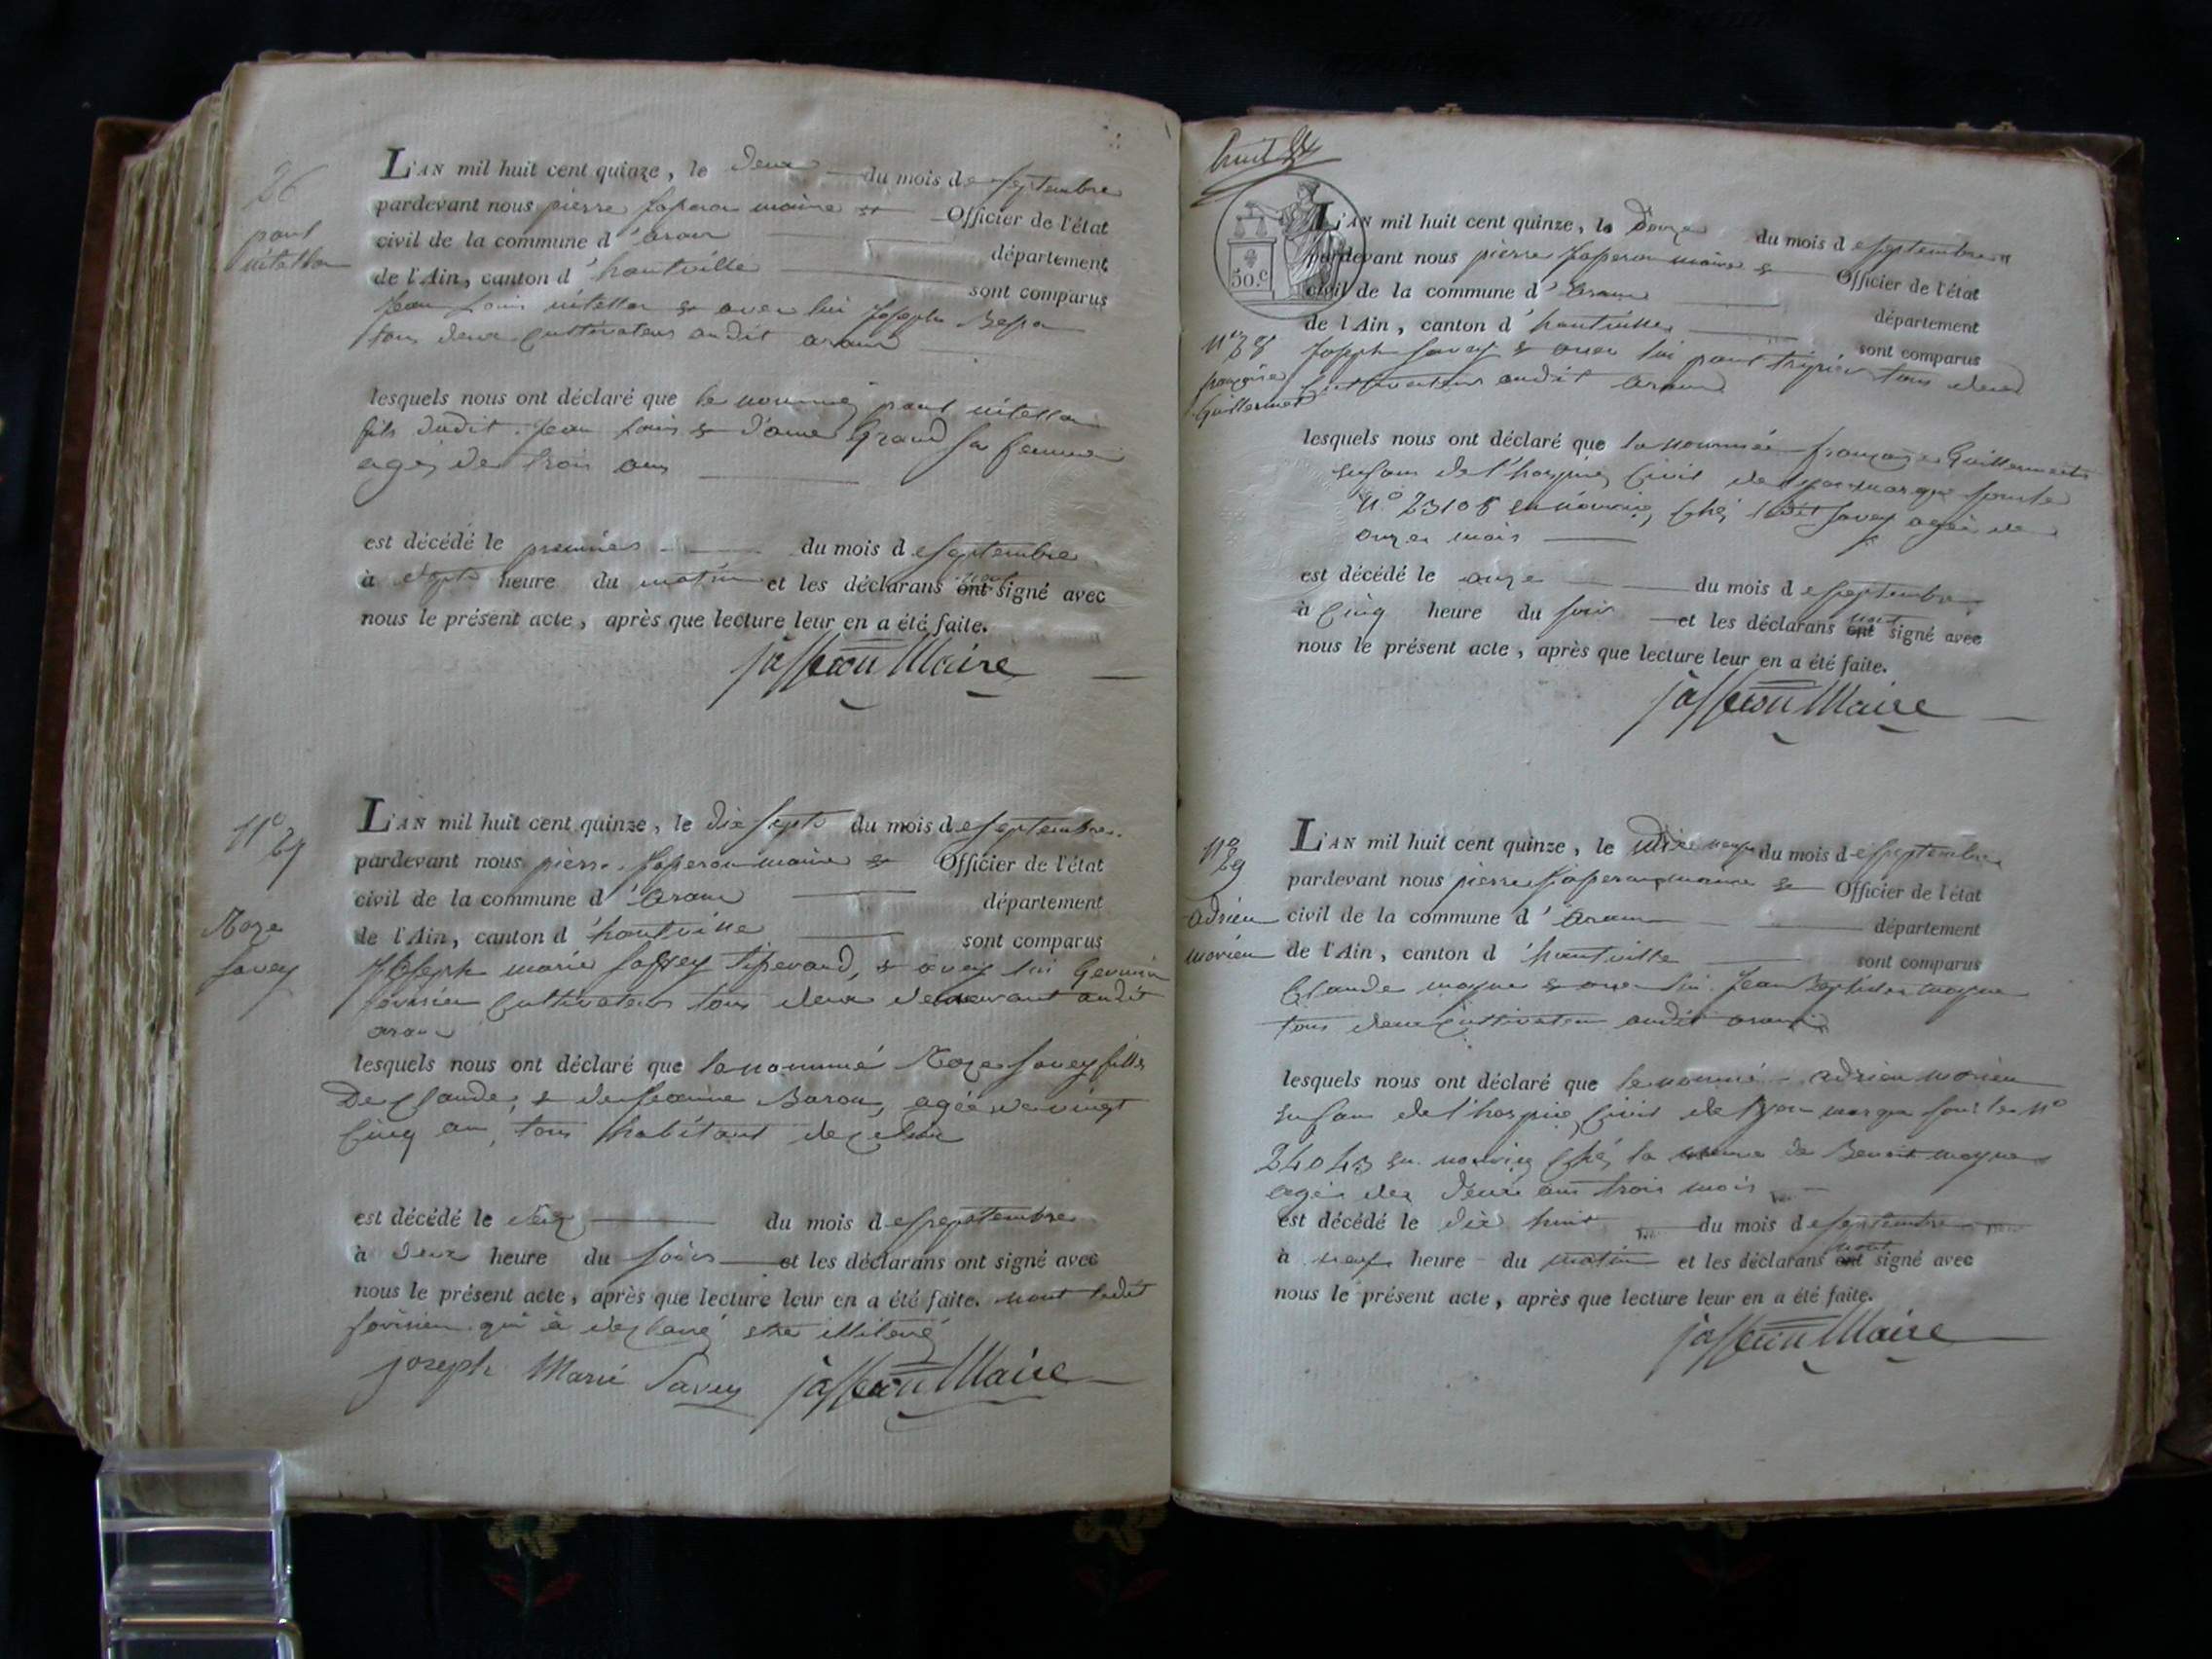 26
paul
vitallon
L'AN mil huit cent quinze, le deux du mois de septembre
pardevant nous pierre Jasseron maire & Officier de l'état
civil de la commune d'aranc département
de l'Ain, canton d'hauteville sont comparus
Jean Louis vitallon & avec lui Joseph
tous deux cultivateurs audit aranc
lesquels nous ont déclaré que le nommé paul vitallon
fils dudit Jean Louis & d'anne Grand sa femme
agé de trois ans
est décédé le premier du mois de septembre
à sept heure du matin et les déclarans ont signé avec
nous le présent acte, après que lecture leur en a été faite.
jasseron Maire
N° 27
Roze
Savey
L'AN mil huit cent quinze, le dix sept du mois de septembre
pardevant nous pierre Jasseron maire & Officier de l'état
civil de la commune d'aranc département
de l'Ain, canton d'hauteville sont comparus
Joseph marie Savey & avec lui Germain
cultivateur tous deux demeurant audit
aranc
lesquels nous ont déclaré que la nommé Roze Savey fille
De Claude, & de Jeanne Baron, agée de vingt
cinq an, tous habitant de
est décédé le du mois de septembre
à deux heure du soir et les déclarans ont signé avec
nous le présent acte, après que lecture leur en a été faite. ledit
qui à declaré etre illiteré
joseph Marie Savey jasseron Maire
huit
50.c
L'AN mil huit cent quinze, le Douze du mois de septembre
pardevant nous pierre Jasseron maire & Officier de l'état
civil de la commune d'aranc département
de l'Ain, canton d'hauteville sont comparus
N° 28
françoise
Guillermet
Joseph Savey & avec lui paul tous deux
Cultivateurs audit aranc
lesquels nous ont déclaré que la nommée françoise Guillermet
enfant de l'hospice Civil de Lyon marqué sous le
N° 23108 en nourice, chez ledit Savey agée de
onze mois
est décédé le onze du mois de septembre
à cinq heure du soir et les déclarans n'ont signé avec
nous le présent acte, après que lecture leur en a été faite.
jasseron Maire
N° 29
adrien
morien
L'AN mil huit cent quinze, le dix neuf du mois de septembre
pardevant nous pierre Jasseron maire & Officier de l'état
civil de la commune d'aranc département
de l'Ain, canton d'hauteville sont comparus
Claude moyne & avec lui Jean Baptiste moyne
tous deux cultivateur audit aranc
lesquels nous ont déclaré que le nommé adrien morien
enfant de l'hospice Civil de Lyon marqué sous le N°
24043 en nourice chez la de Benoit moyne
agé de deux ans trois mois
est décédé le dix huit du mois de septembre
à neuf heure du matin et les déclarans n'ont signé avec
nous le présent acte, après que lecture leur en a été faite.
jasseron Maire